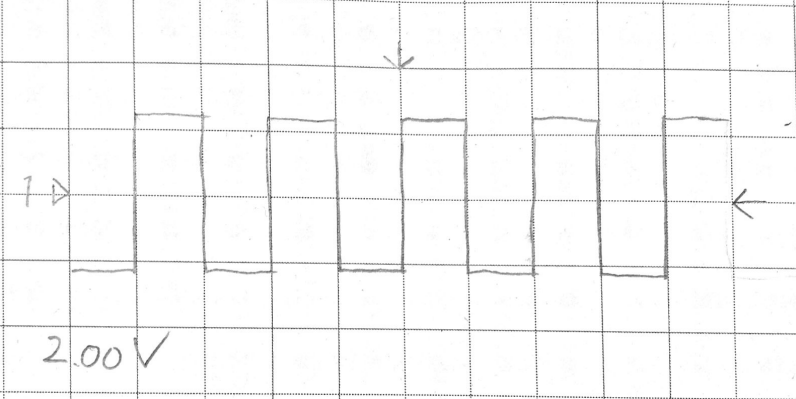 1
2.00V